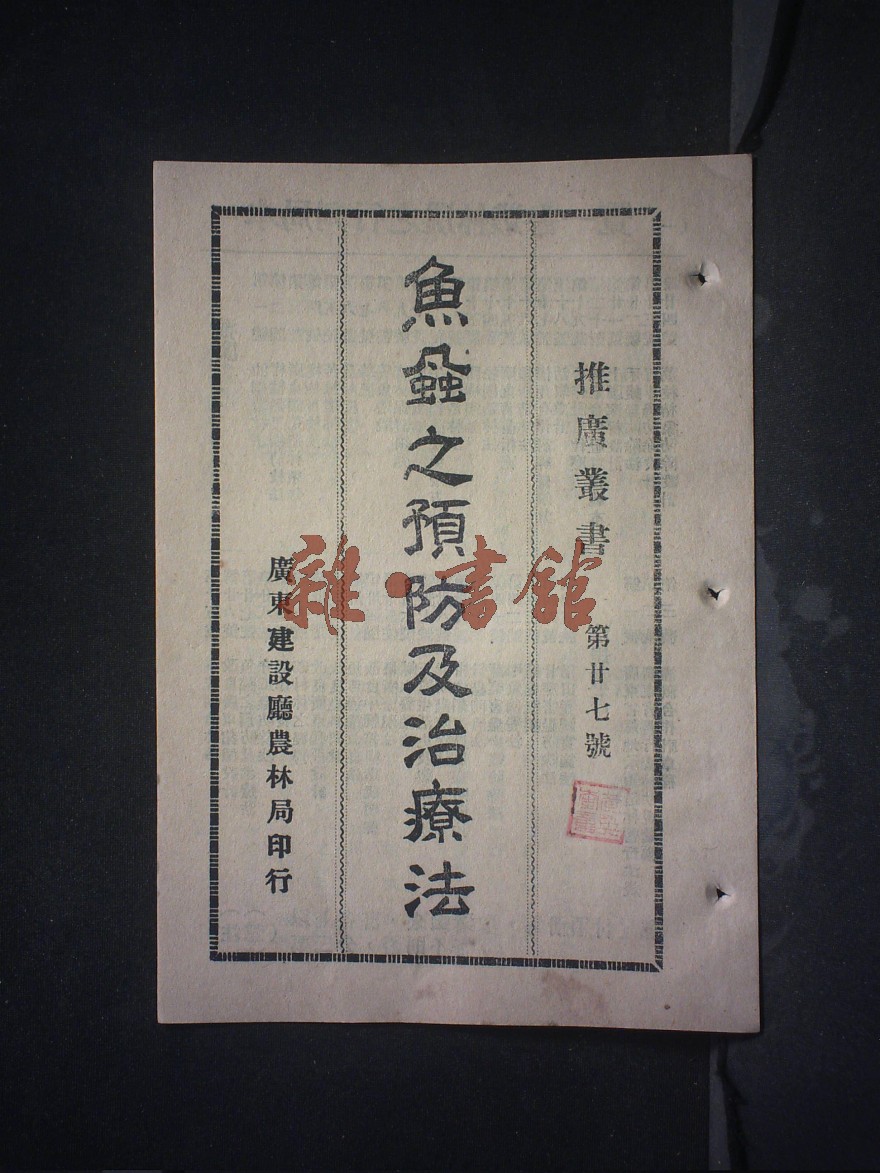 推廣叢書 第廿七號
魚蝨之預防及治療法
廣東建設廳農林局印行
雜·書館